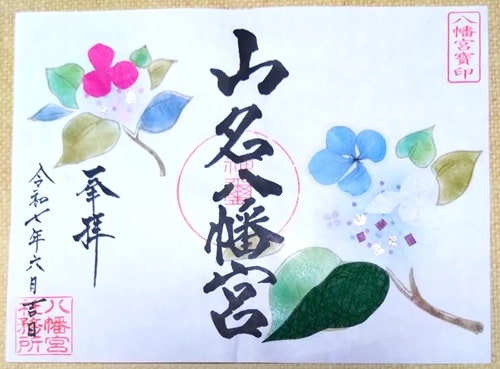 八幡宮寳印
山名八幡宮
奉拝
令和七年六月吉日
八幡宮
社務所